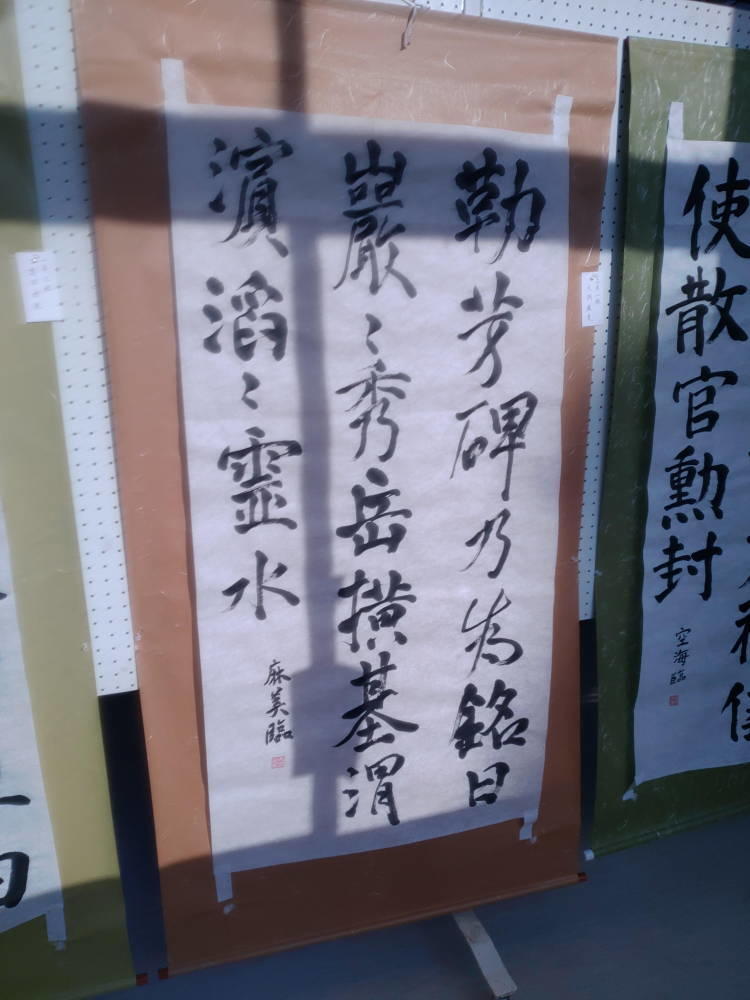 勒芳碑乃為銘曰
巖〻秀岳横基渭
濵滔〻霊水
麻美臨
使散官勲封
空海臨